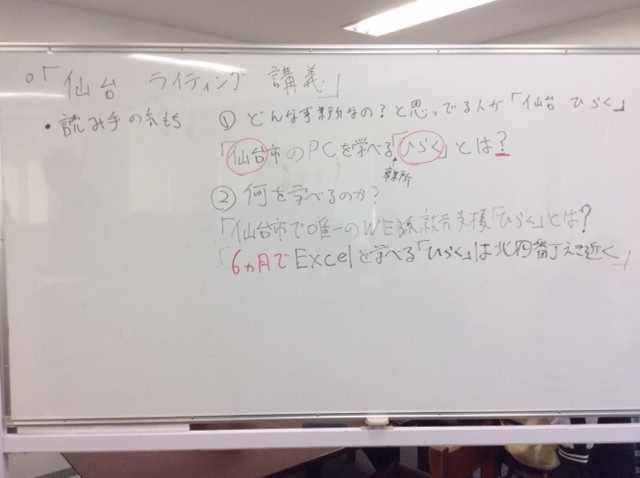 ○「仙台 ライティング 講義」
・読み手の気持ち
① どんな事業所なの？と思ってる人が「仙台 ひらく」
「仙台市のPCを学べる「ひらく」とは？
事業所
② 何を学べるのか？
「仙台市で唯一のWEB系就労支援「ひらく」とは？
「6ヵ月でExcelを学べる「ひらく」は北四番丁えき近く」